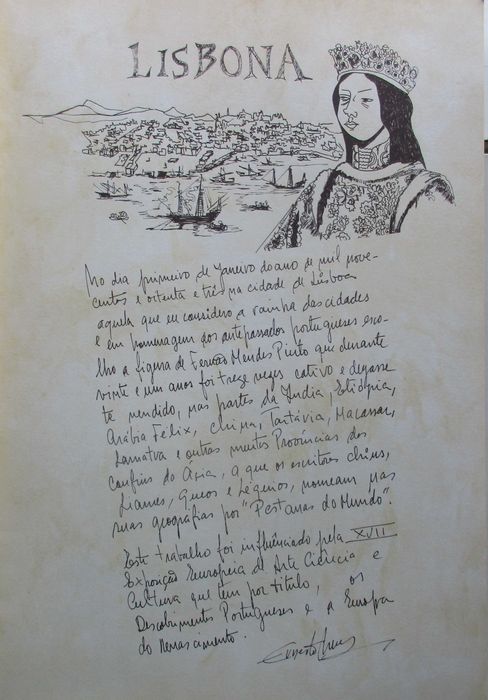 LISBONA
No dia primeiro de Janeiro do ano de mil nove-
centos e oitenta e três na cidade de Lisboa
aquela que eu considero a rainha das cidades
e em homenagem aos antepassados portugueses esco-
lho a figura de Fernão Mendes Pinto que durante
vinte e um anos foi treze vezes cativo e dezasse
te vendido, nas partes da India, Etiópia,
Arábia Félix, China, Tartávia, Macassar,
Samatra e outras muitas Províncias dos
confins da Ásia, a que os escritores chins,
Siames, Gueos e Léquios, nomeam nas
suas geografias por "Pestanas do Mundo".
Este trabalho foi influênciado pela XVII
Exposição Europeia de Arte Ciência e
Cultura que tem por titulo, os
Descobrimentos Portugueses e a Europa
do Renascimento.